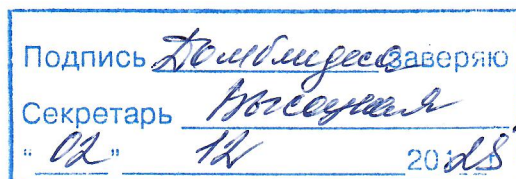 Подпись Домблидеса заверяю
Секретарь Высоцкая
"02" 12 2025